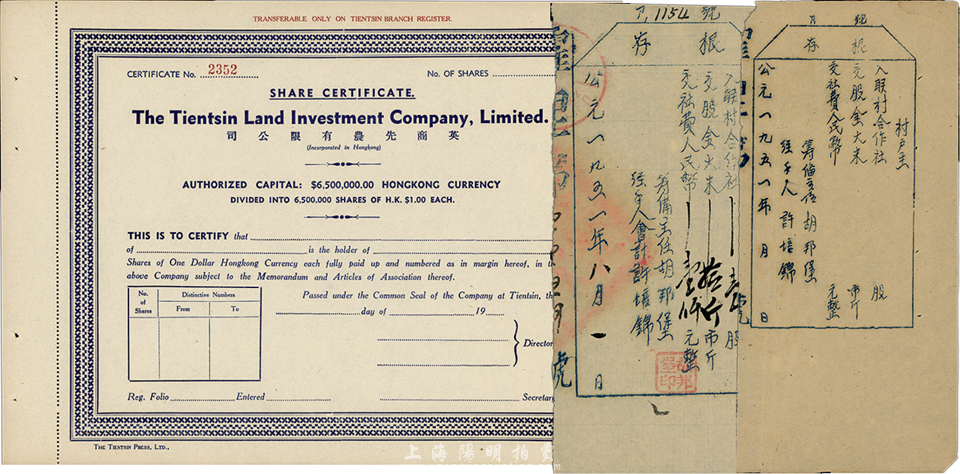 TRANSFERABLE ONLY ON TIENTSIN BRANCH REGISTER.
CERTIFICATE No. 2352
No. OF SHARES
SHARE CERTIFICATE.
The Tientsin Land Investment Company, Limited.
司公限有農先商英
(Incorporated in Hongkong)
AUTHORIZED CAPITAL: $6,500,000.00 HONGKONG CURRENCY
DIVIDED INTO 6,500,000 SHARES OF H.K. $1.00 EACH.
THIS IS TO CERTIFY that
of is the holder of
Shares of One Dollar Hongkong Currency each fully paid up and numbered as in margin hereof, in th
above Company subject to the Memorandum and Articles of Association thereof.
No. of Shares
Distinctive Numbers
From To
Passed under the Common Seal of the Company at Tientsin, th
day of 19
Director
Secretary
Reg. Folio Entered
THE TIENTSIN PRESS, LTD.,
1154 號
存根
入股村合作社 股
交股金大米 拾斤 市斤
交社費人民幣 元整
籌備主任胡邦堡
經手人會計許培錦
公元一九五一年八月一日
號
存根
村戶主
入股村合作社 股
交股金大米 市斤
交社費人民幣 元整
籌備主任胡邦堡
經手人 許培錦
公元一九五一年 月 日
上海陽明拍賣